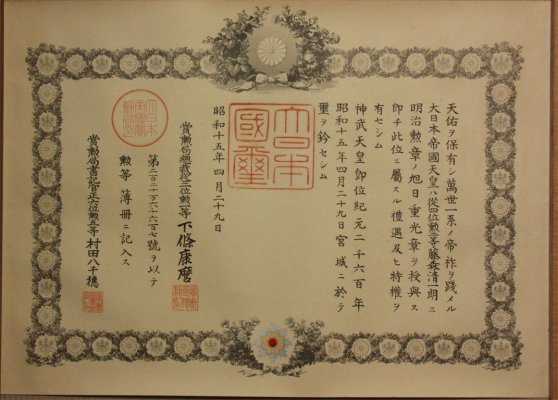 天佑ヲ保有シ萬世一系ノ帝祚ヲ踐メル
大日本帝國天皇ハ從四位勲二等藤森清一朗ニ
明治勲章ノ旭日重光章ヲ授與ス
即チ此位ニ屬スル禮遇及ヒ特權ヲ
有セシム
神武天皇即位紀元二千六百年
昭和十五年四月二十九日宮城ニ於テ
璽ヲ鈐セシム
大日本國璽
昭和十五年四月二十九日
賞勲局總裁從三位勲二等下條康麿
第二百二十万六千六百七號ヲ以テ
勲等簿冊ニ記入ス
賞勲局書記官正六位勲五等村田八千穂